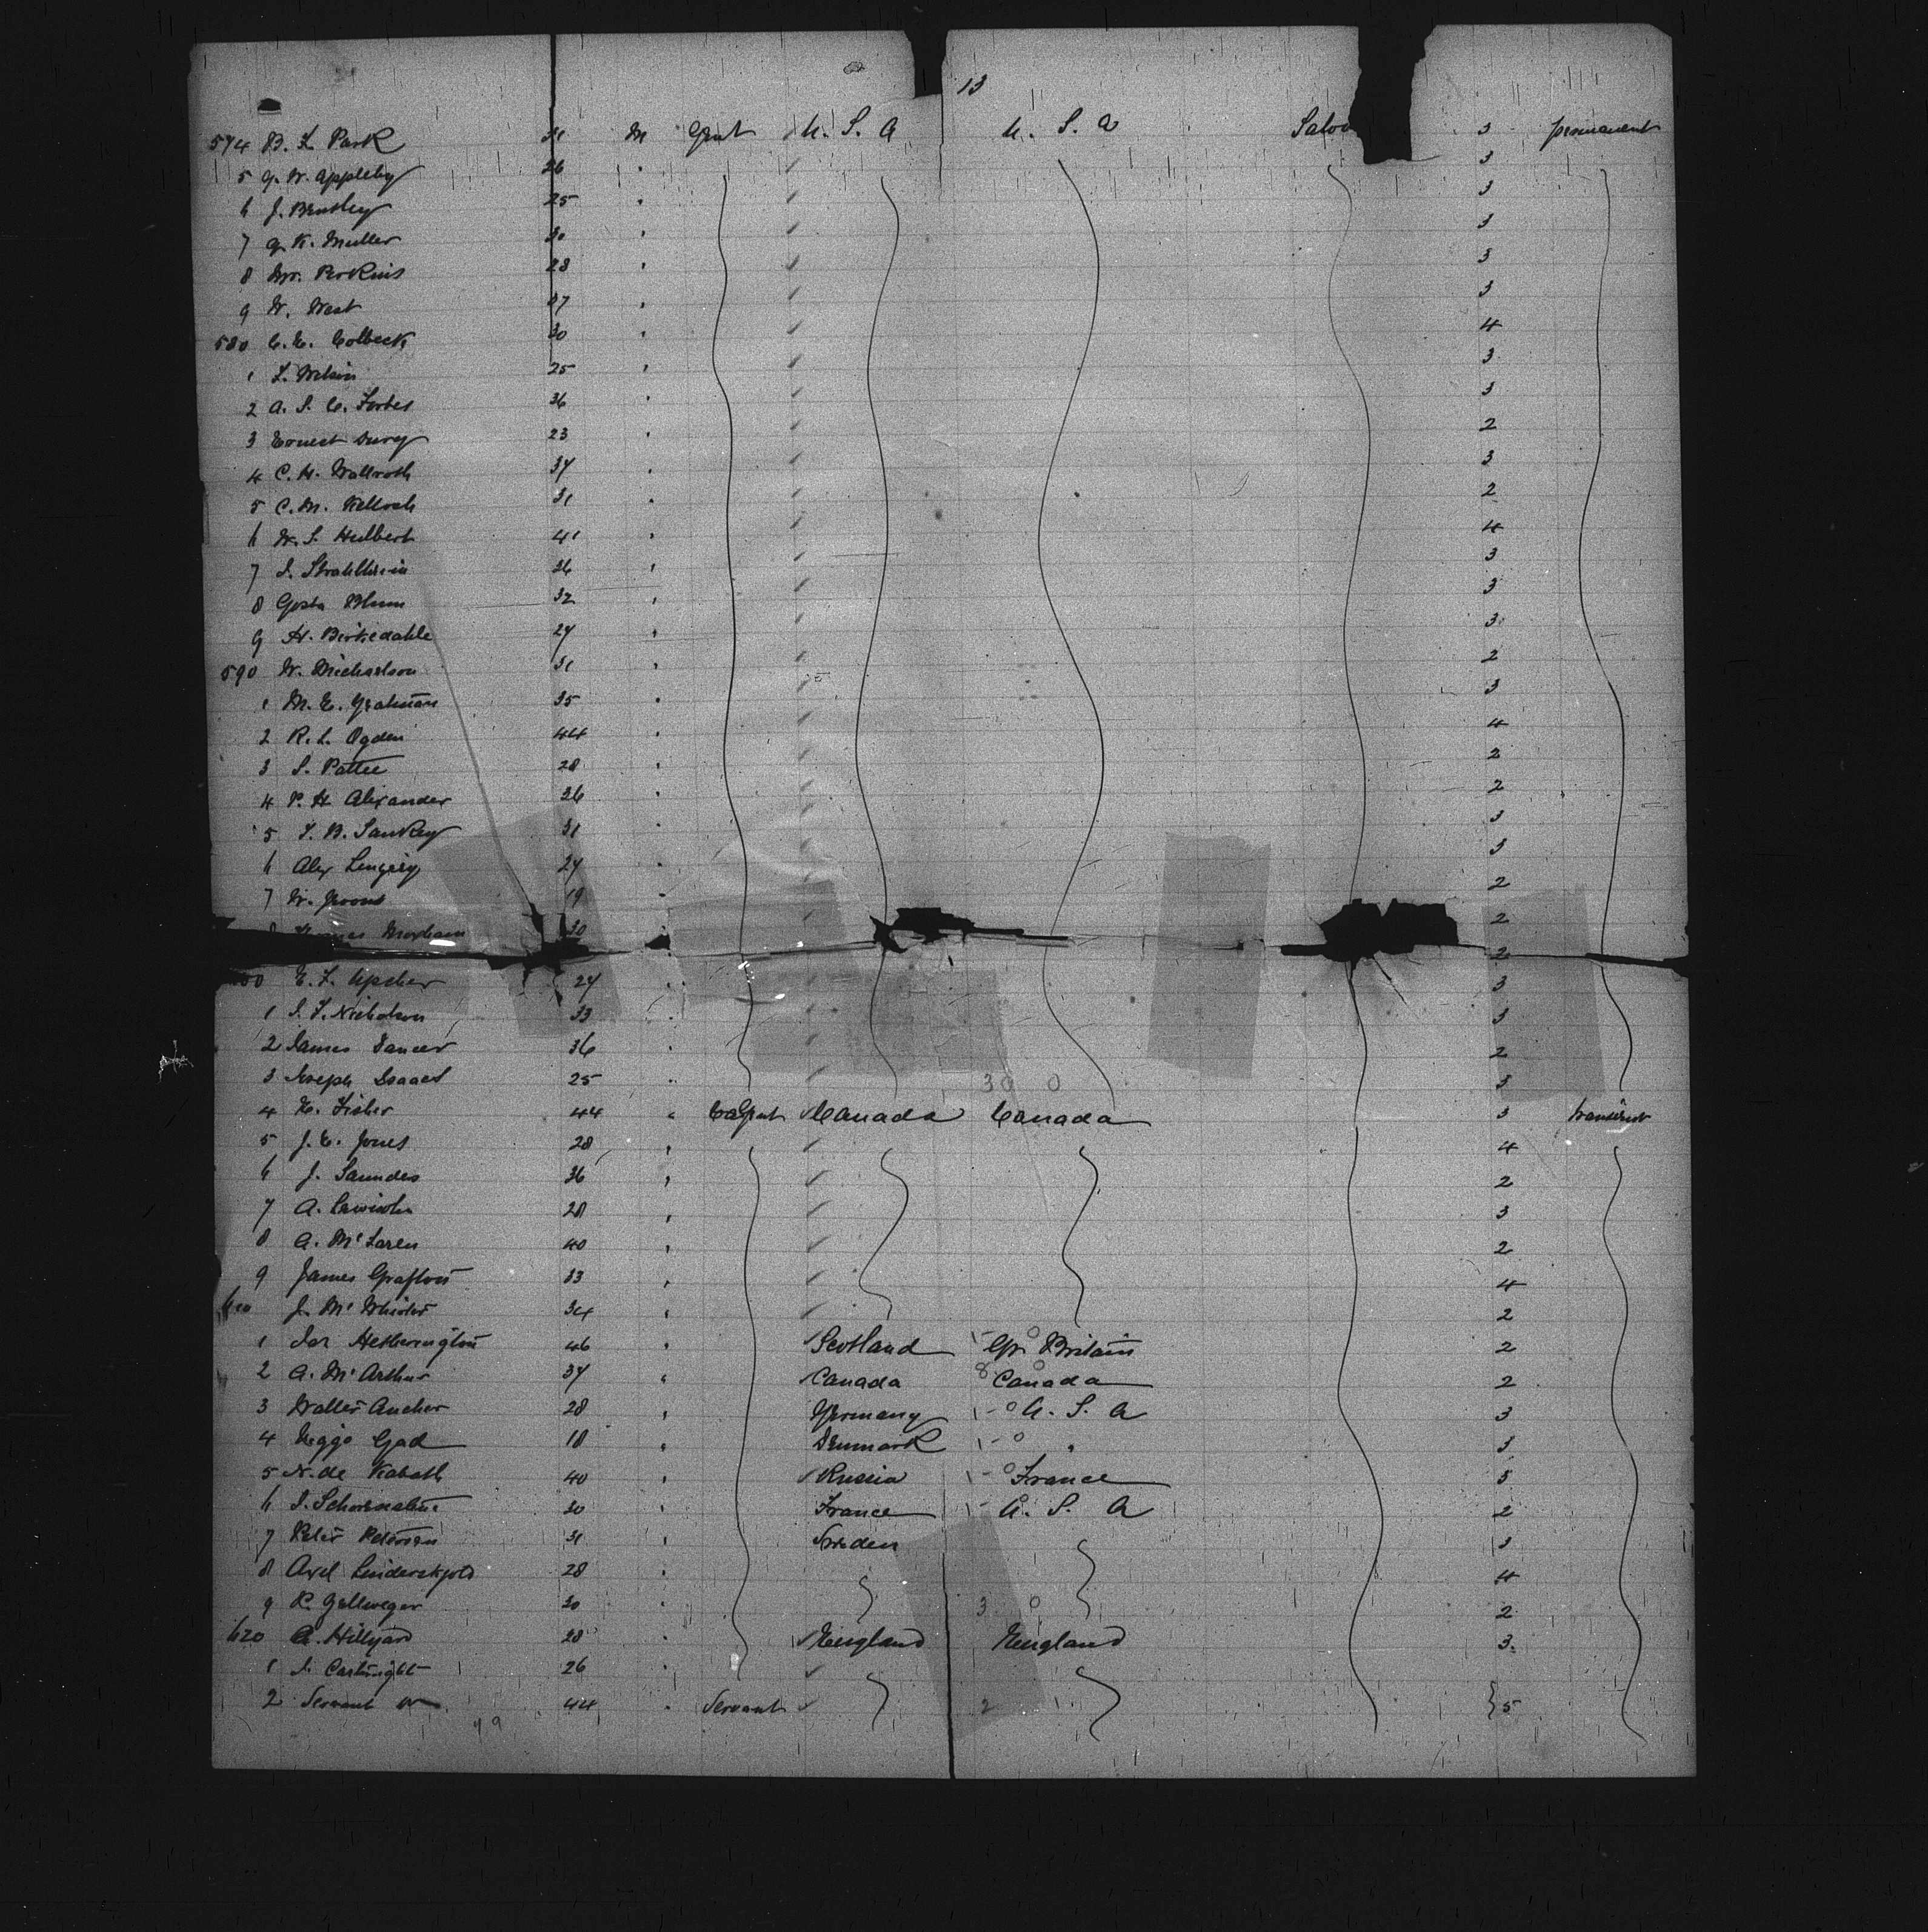 13
574 B. L. Park 31 M Gent U. S. A U. S. a Saloo 3 permanent
5 G. W. Appleby 26 " 3
6 J. Bentley 25 " 3
7 G. K. Muller 30 " 3
8 Wm. Perkins 28 " 3
9 W. West 37 " 3
580 C. E. Colbeck 30 " 4
1 L. Wilson 25 " 3
2 A. S. C. Forbes 36 " 3
3 Ernest Jury 23 " 2
4 C. H. Wallroth 37 " 3
5 C. M. 31 " 2
6 W. S. Hulbert 41 " 4
7 36 " 3
8 Gosta Blum 32 " 3
9 H. Birkedahle 27 " 3
590 W. Michaelson 31 " 2
1 M. E. Yeatman 35 " 3
2 R. L. Ogden 44 " 4
3 S. Pattee 28 " 2
4 P. H. Alexander 36 " 2
5 T. B. Sankey 31 " 3
6 Alex 27 " 3
7 W. 19 " 2
Moxham 30 2
2
00 E. L. Upcher 27 " 3
1 S. T. Nicholson 33 " 3
2 James Dancer 36 " 2
3 Joseph Isaacs 25 " 3
30 0
4 E. Fisher 44 " Gent Canada Canada 3 transient
5 J. C. Jones 28 " 4
6 J. Saunders 36 " 2
7 A. 28 " 3
8 A. McLaren 40 " 2
9 James Grafton 33 " 4
610 J. McWhirter 34 " 2
1 Jas Hetherington 46 " Scotland 1 - 0 Gr. Britain 2
2 A. McArthur 37 " Canada 8 0 Canada 2
3 Walter Ancher 28 " Germany 1 - 0 U. S. A 3
4 Viggo Gad 18 " Denmark 1 - 0 " 3
5 N. de Kabath 40 " Russia 1 - 0 France 5
6 30 " France 1 - 0 U. S. A 2
7 Peter Petersen 31 " Sweden 3
8 Axel Linderskjold 28 " 4
9 R. Zellweger 30 " 3 0 2
620 A. Hillyard 28 " England England 3
1 J. Cartwright 26 "
2 Servant 44 " Servant 2 5